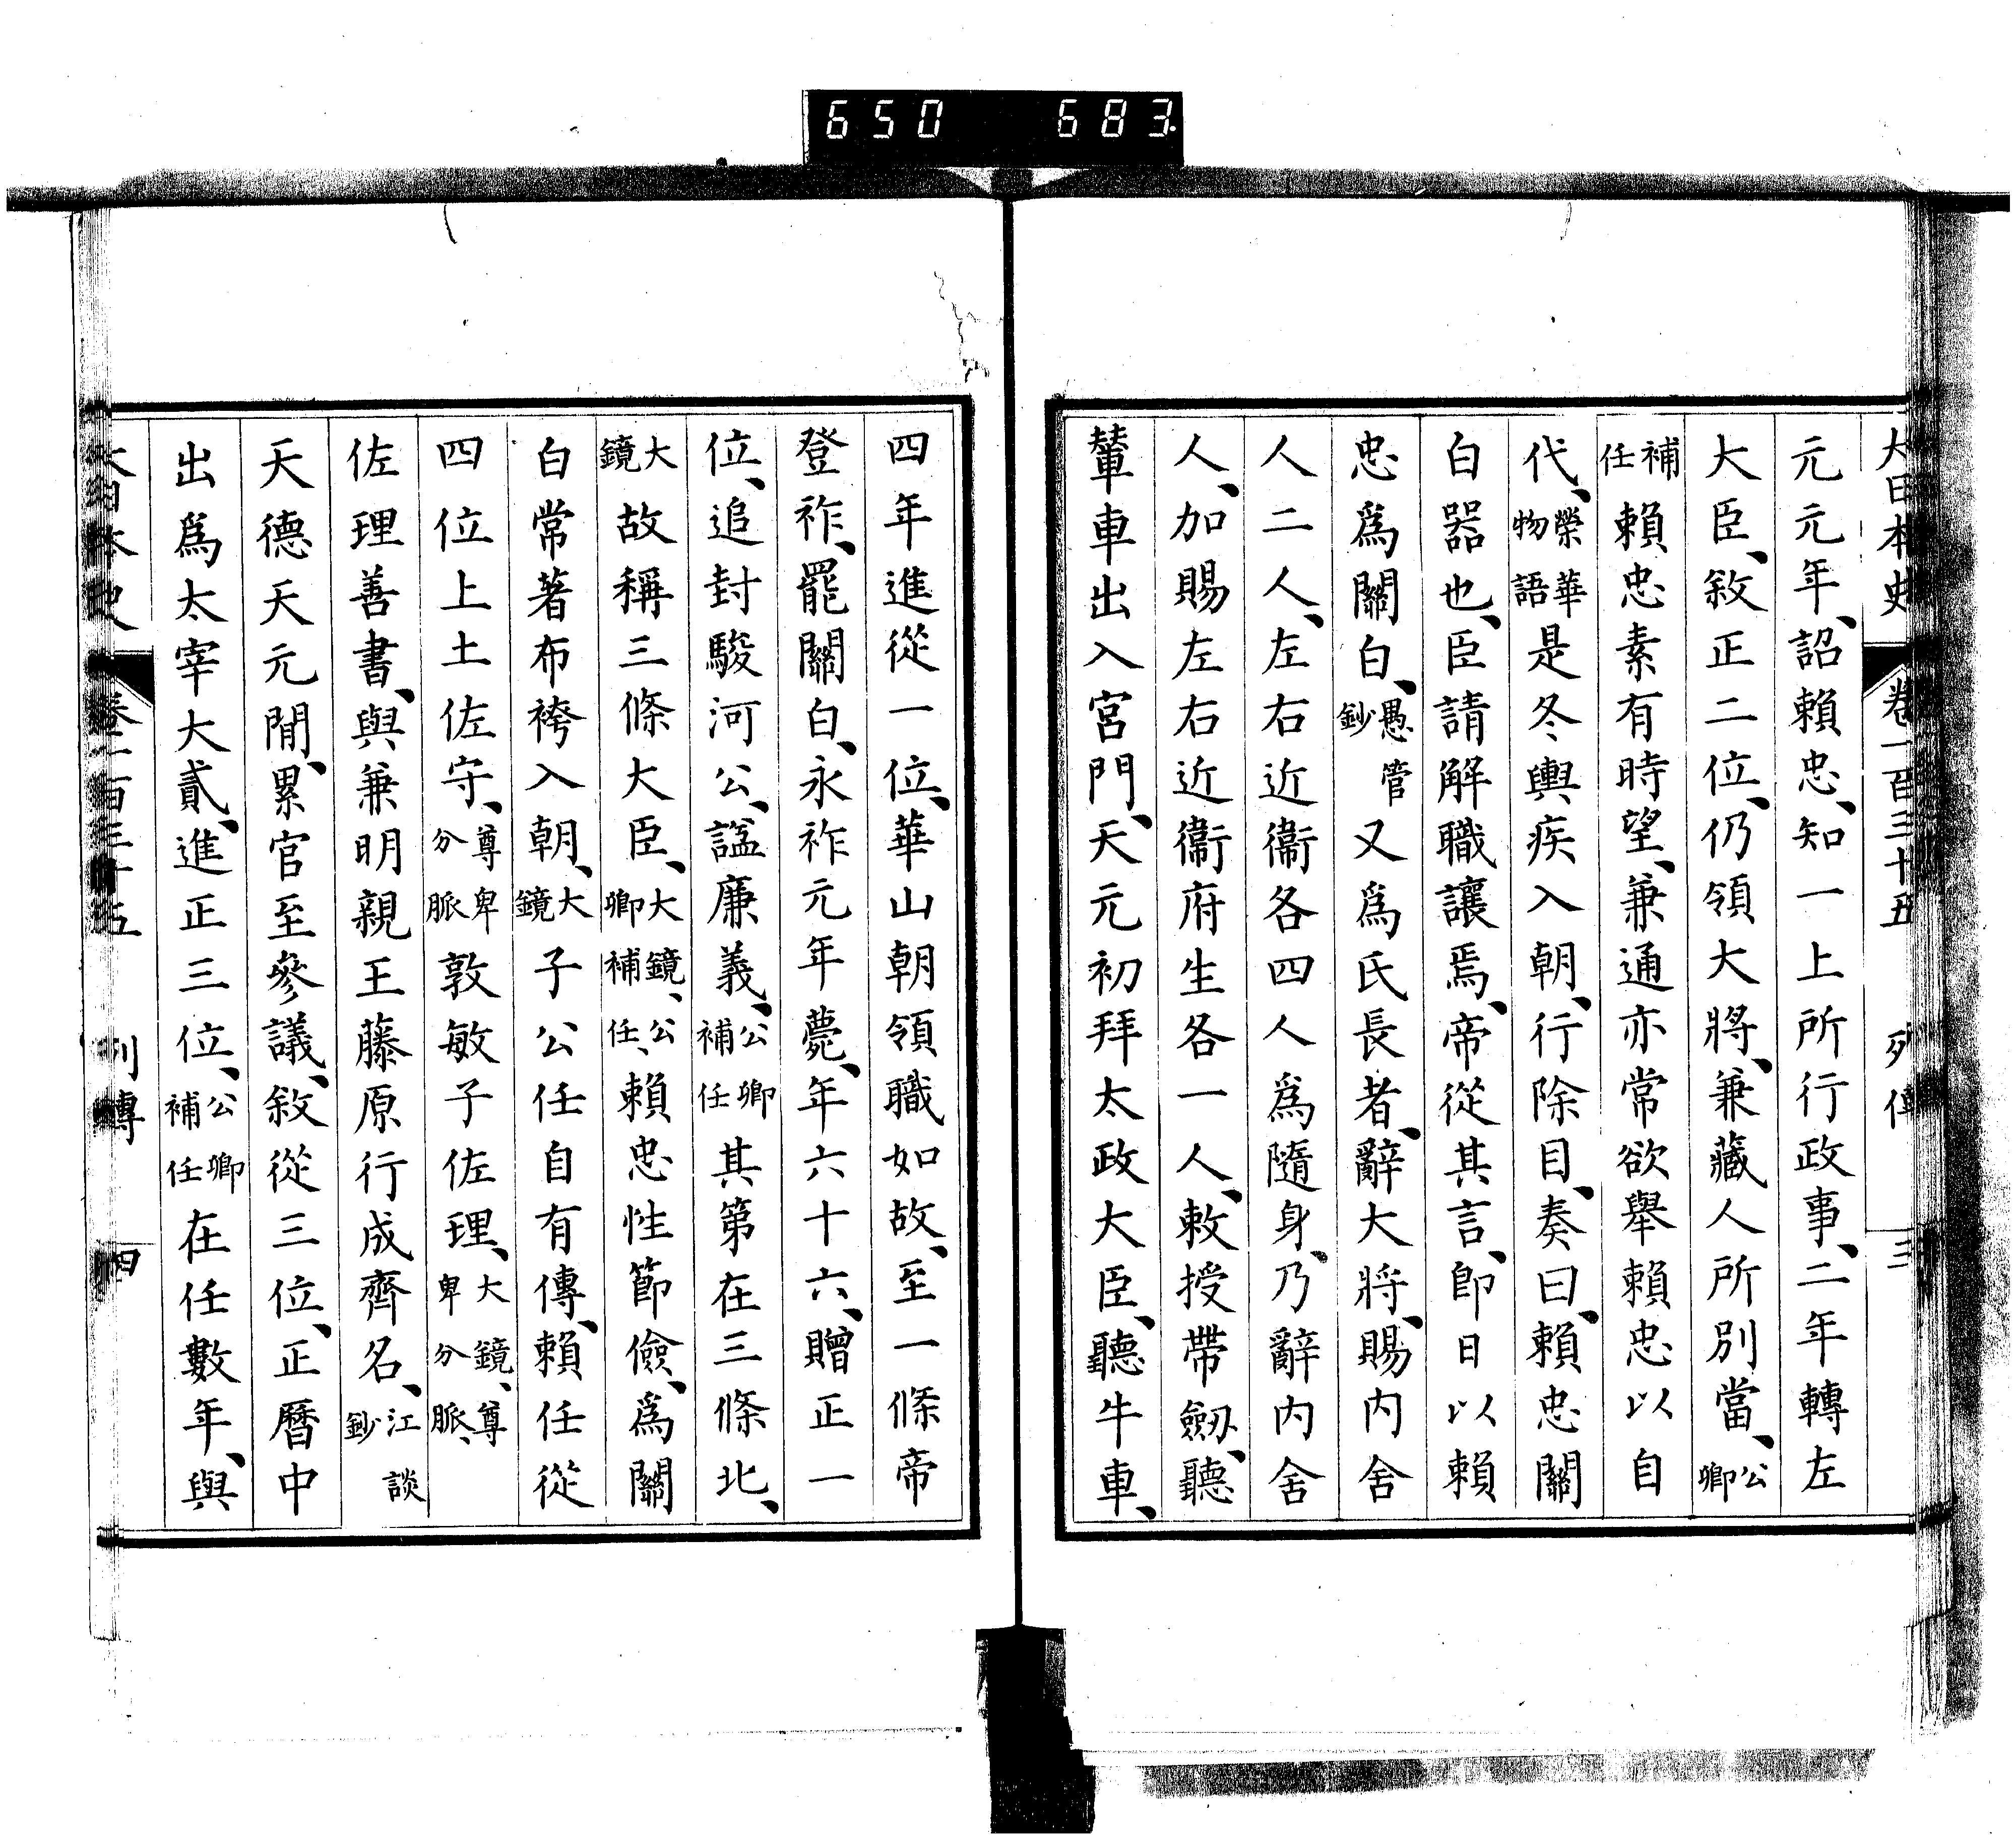 650 683.
大日本史 卷一百三十五 列傳 三
元元年、詔賴忠、知一上所行政事、二年轉左
大臣、敘正二位、仍領大將、兼藏人所別當、公卿
補任賴忠素有時望、兼通亦常欲舉賴忠以自
代、榮華物語是冬輿疾入朝、行除目、奏曰、賴忠關
白器也、臣請解職讓焉、帝從其言、卽日以賴
忠爲關白、愚管鈔又爲氏長者、辭大將、賜內舍
人二人、左右近衞各四人爲隨身、乃辭內舍
人、加賜左右近衞府生各一人、敕授帶劔、聽
輦車出入宮門、天元初拜太政大臣、聽牛車、
四年進從一位、華山朝領職如故、至一條帝
登祚、罷關白、永祚元年薨、年六十六、贈正一
位、追封駿河公、諡廉義、公卿補任其第在三條北、
大鏡故稱三條大臣、大鏡、公卿補任、賴忠性節儉、爲關
白常著布袴入朝、大鏡子公任自有傳、賴任從
四位上土佐守、尊卑分脈敦敏子佐理、大鏡、尊卑分脈、
佐理善書、與兼明親王藤原行成齊名、江談鈔
天德天元閒、累官至參議、敘從三位、正曆中
出爲太宰大貳、進正三位、公卿補任在任數年、與
大日本史 卷一百三十五 列傳 四